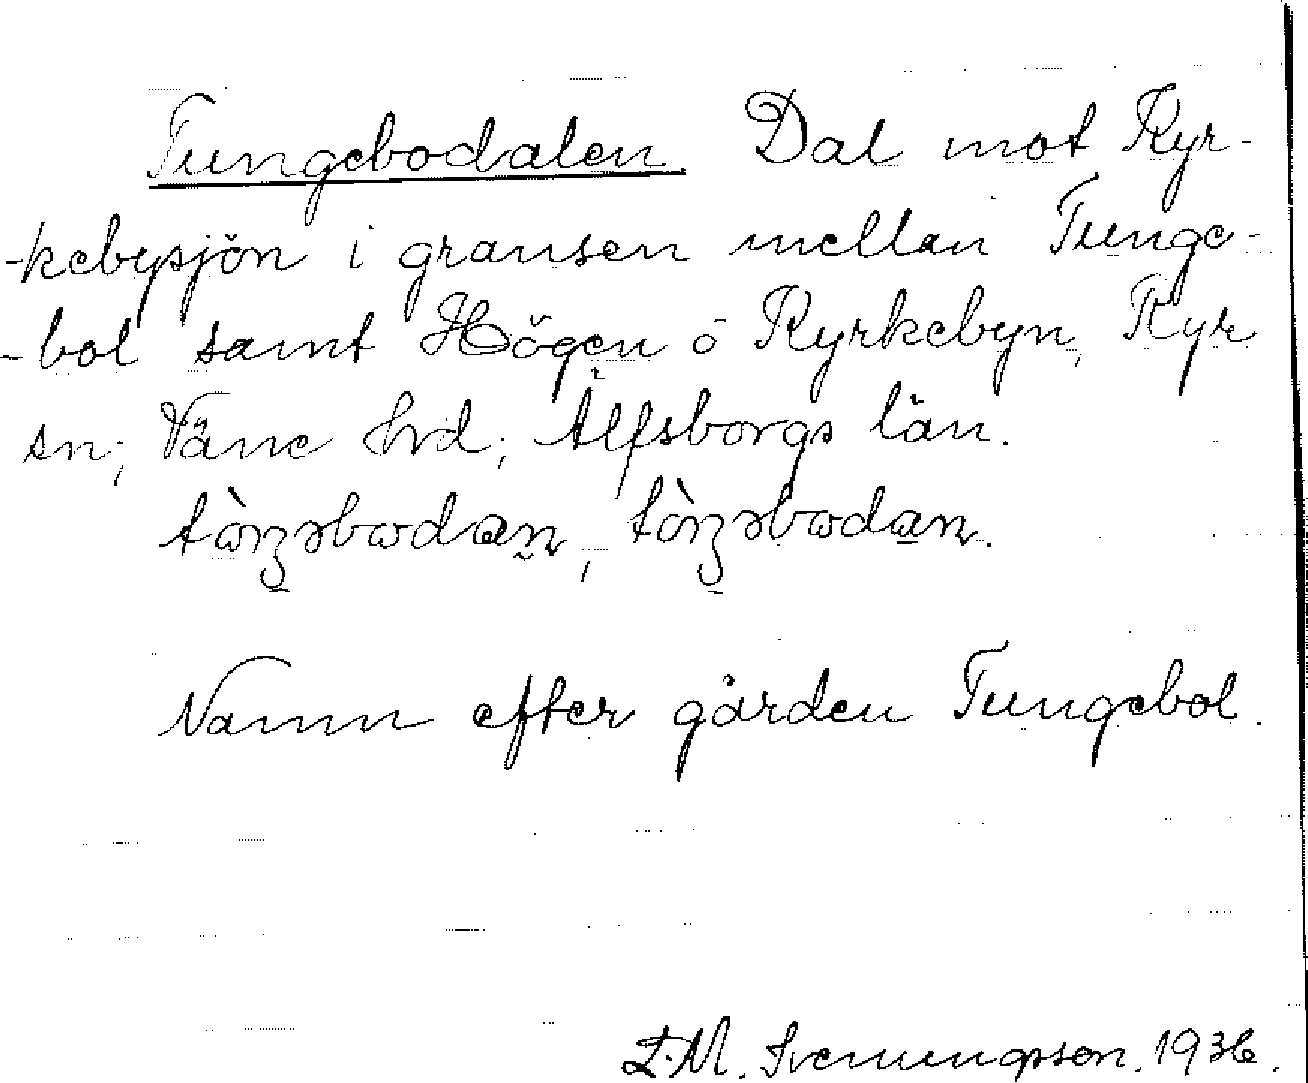 Tungebodalen Dal mot Kyr-
-kebysjön i gränsen mellan Tunge-
-bol samt Högen o Kyrkebyn, Kyr
sn; Väne hrd; Älfsborgs län.
Namn efter gården Tungebol.
L.M. Svenungsson. 1936.